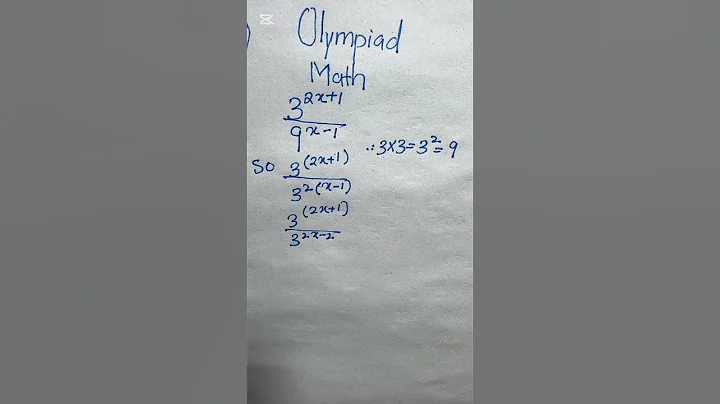 Olympiad
Math
3^(2x+1)
9^(x-1)
∵ 3×3=3^2=9
So 3^(2x+1)
3^2(x-1)
3^(2x+1)
3^2x-2